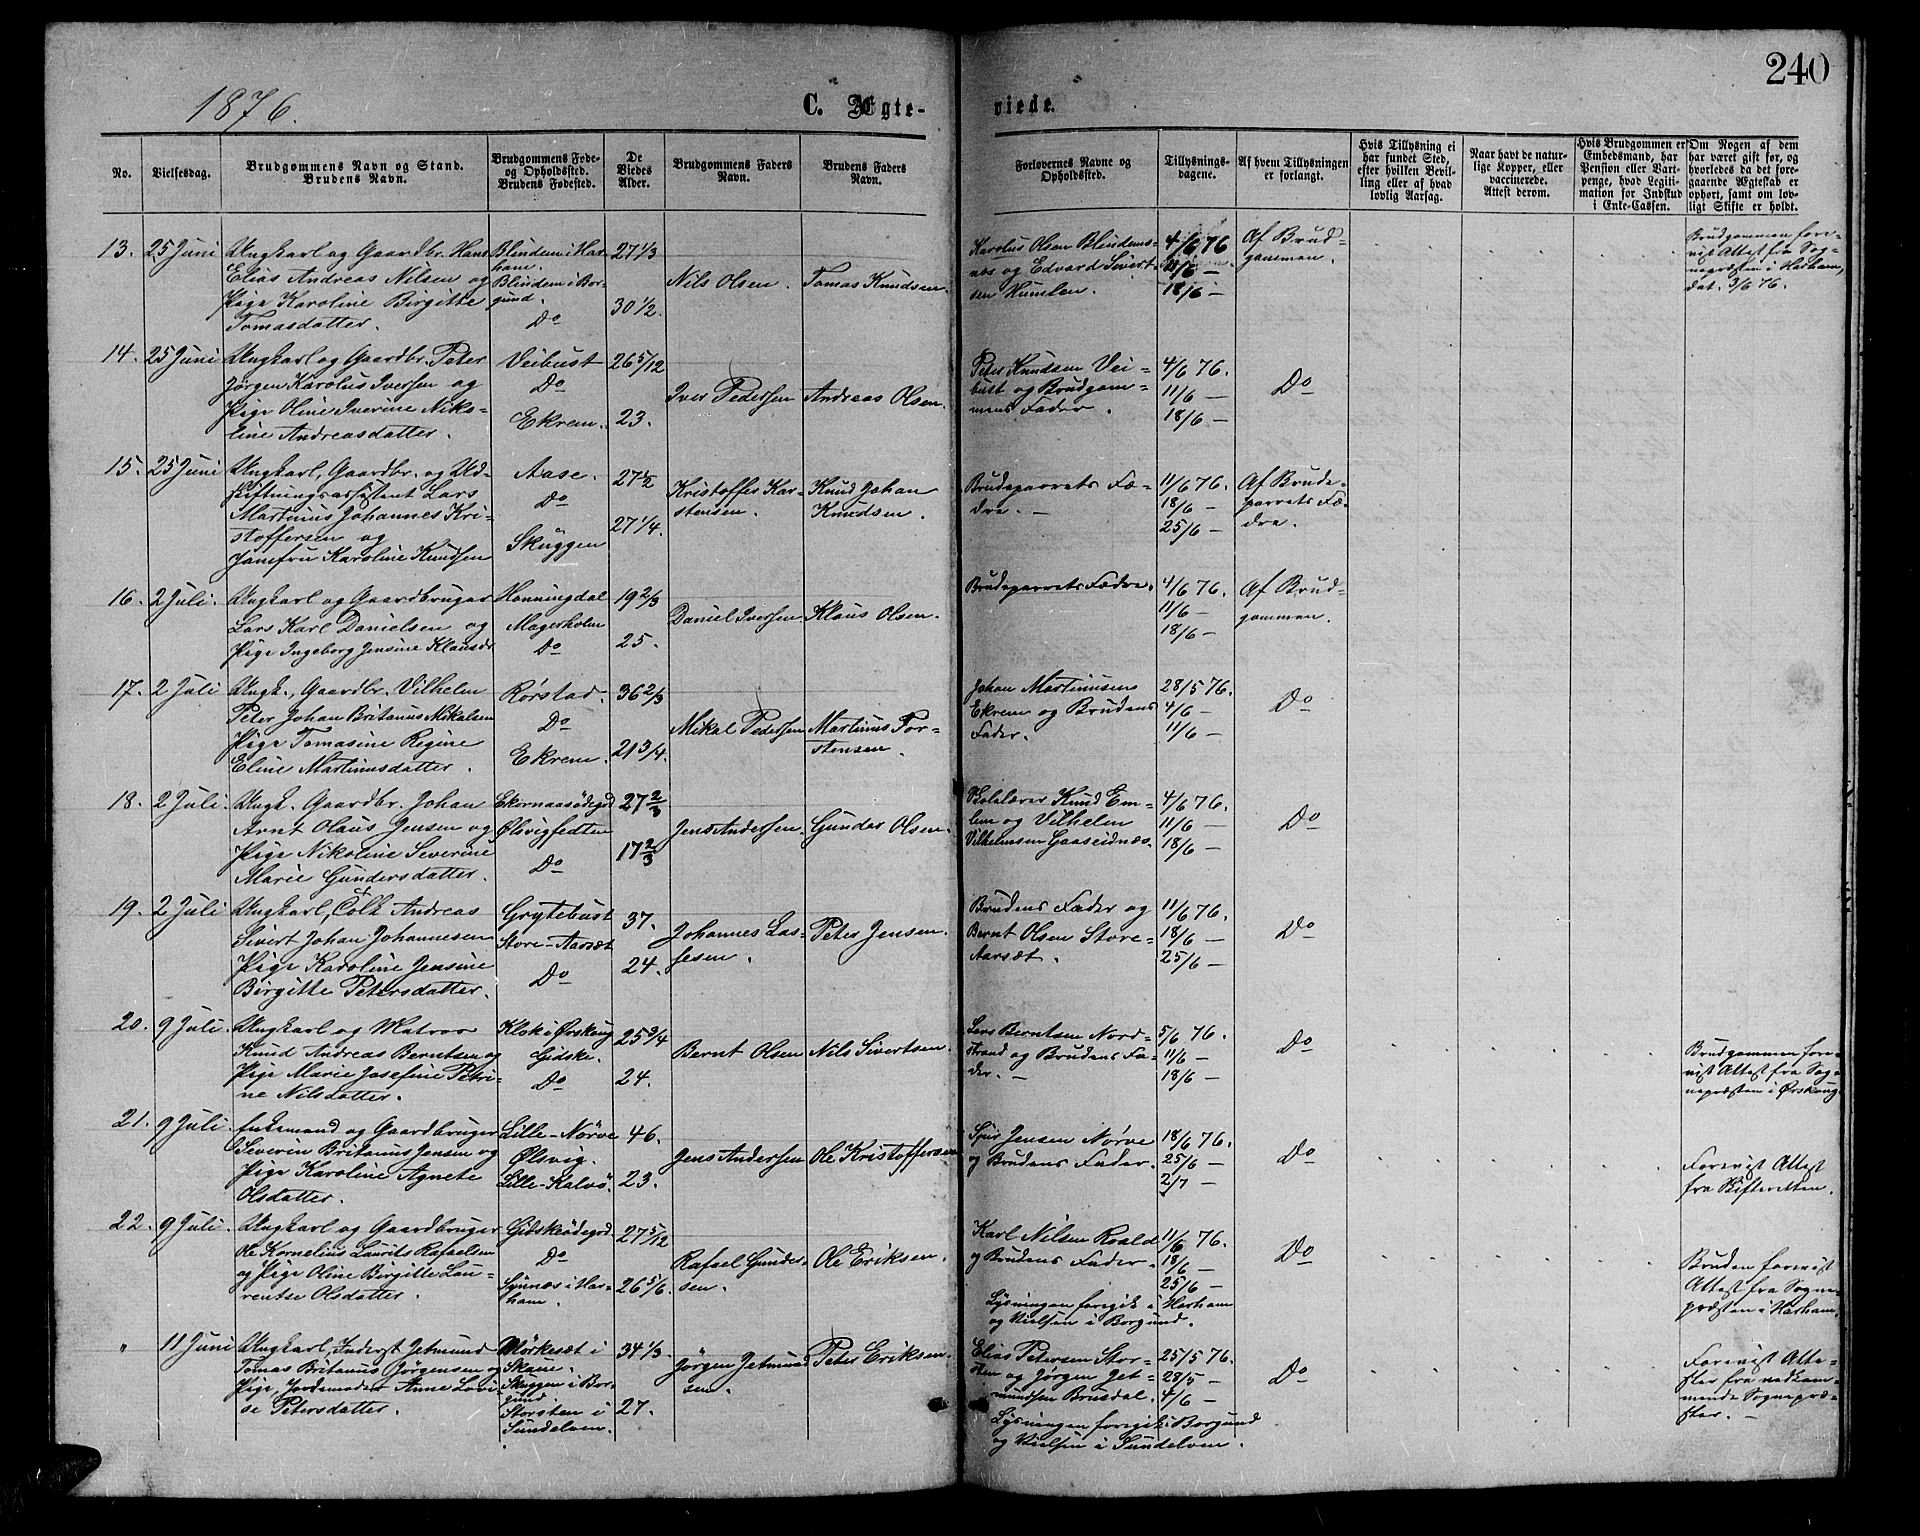 240
1876.
C. Ægte-
viede.
No.
Vielsesdag.
Brudgommens Navn og Stand.
Brudens Navn.
Brudgommens Føde-
og Opholdssted.
Brudens Fødested.
De
Viedes
Alder.
Brudgommens Faders
Navn.
Brudens Faders
Navn.
Forlovernes Navne og
Opholdssted.
Tillysnings-
dagene.
Af hvem Tillysningen
er forlangt.
Hvis Tillysning ei
har fundet Sted,
efter hvilken Bevil-
ling eller af hvad
lovlig Aarsag.
Naar havt de natur-
lige Kopper, eller
vaccinerede.
Attest derom.
Hvis Brudgommen er
Embedsmand, har
Pension eller Vart-
penge, hvad Legiti-
mation for Indskud
i Enke-Cassen.
Om Nogen af dem
har været gift før, og
hvorledes da det fore-
gaaende Ægteskab er
ophørt, samt om lov-
ligt Skifte er holdt.
13.
25 Juni
Ungkarl og Gaardbr. Hans
Elias Andreas Nilsen og
Pige Karoline Birgitte
Tomasdatter.
Blindem i Har-
ham.
Blindem i Bor-
gund.
Do
27 1/3
30 1/2.
Nils Olsen.
Tomas Knudsen.
Karolus Olsen Blindems-
næs og Edvard Sivert-
sen Humlen.
4/6 76
11/6 —
18/6 —
Af Brud-
gommen.
Brudgommen fore-
vist Attest fra Sog-
nepræsten i Harham,
dat. 3/6 76.
14.
25 Juni
Ungkarl og Gaardbr. Peter
Jørgen Karolus Iversen og
Pige Oline Iverine Niko-
line Andreasdatter.
Veibust
Do
Ekrem.
26 5/12
23.
Iver Pedersen
Andreas Olsen.
Peter Knudsen Vei-
bust og Brudgom-
mens Fader.
4/6 76.
11/6 —
18/6 —
Do
15.
25 Juni
Ungkarl, Gaardbr. og Ud-
skiftningsassistent Lars
Martinius Johannes Kri-
stoffersen og
Jomfru Karoline Knudsen
Aase.
Do
Skuggen
27 1/2
27 1/4.
Kristoffer Kar-
stensen.
Knud Johan
Knudsen.
Brudeparrets Fæ-
dre. —
11/6 76.
18/6 —
25/6 —
Af Brude-
parrets Fæ-
dre.
16.
2 Juli.
Ungkarl og Gaardbruger
Lars Karl Danielsen og
Pige Ingeborg Jensine Klausdr
Honningdal
Magerholm
Do
19 2/3
25.
Daniel Iversen
Klaus Olsen.
Brudeparrets Fædre.
4/6 76.
11/6 —
18/6 —
Af Brud-
gommen.
17.
2 Juli
Ungk., Gaardbr. Vilhelm
Peter Johan Britanus Mikalsen
Pige Tomasine Regine
Eline Martinusdatter.
Rørstad.
Do
Ekrem.
36 2/3
21 3/4.
Mikal Pedersen
Martinus Tor-
stensen.
Johan Martinusens
Ekrem og Brudens
Fader.
28/5 76.
4/6 —
11/6 —
Do
18.
2 Juli.
Ungk. Gaardbr. Johan
Arnt Olaus Jensen og
Pige Nikoline Severine
Marie Gundersdatter.
Ekornaasødegrd
Ølsvigfedten
Do
27 2/3
17 2/3
Jens Andersen.
Gunder Olsen.
Skolelærer Knud Em-
lem og Vilhelm
Vilhelmsen Gaaseidnæs.
4/6 76.
11/6 —
18/6 —
Do
19.
2 Juli
Ungkarl, Colk Andreas
Sivert Johan Johannesen
Pige Karoline Jensine
Birgitte Petersdatter.
Grytebust
Store-Aarsæt
Do
37.
24.
Johannes Las-
sesen.
Peter Jensen.
Brudens Fader og
Bernt Olsen Store-
Aarsæt.
11/6 76.
18/6 —
25/6 —
Do
20.
9 Juli.
Ungkarl og Matros
Knud Andreas Berntsen og
Pige Marie Josefine Petri-
ne Nilsdatter.
Klok i Ørskoug
Gidske.
Do
25 3/4
24.
Bernt Olsen
Nils Sivertsen.
Lars Berntsen Nord-
strand og Brudens Fa-
der. —
5/6 76.
11/6 —
18/6 —
Do
Brudgommen fore-
vist Attest fra Sog-
nepræsten i Ørskoug.
21.
9 Juli.
Enkemand og Gaardbruger
Severin Britanus Jensen og
Pige Karoline Agnete
Olsdatter.
Lille-Nørve
Ølsvig.
Lille-Kalvø.
46.
23.
Jens Andersen
Ole Kristoffersen
Sjur Jensen Nørve
og Brudens Fader.
18/6 76.
25/6 —
2/7 —
Do
Forevist Attest
fra Skifteretten.
22.
9 Juli.
Ungkarl og Gaardbruger
Ole Kornelius Laurits Rafaelsen
og Pige Oline Birgitte Lau-
rentse Olsdatter.
Gidskeødegrd.
Do
Synnæs i Har-
ham.
27 5/12
26 5/6.
Rafael Gunder-
sen.
Ole Eriksen.
Karl Nilsen Roald
og Brudens Fader.
11/6 76.
18/6 —
25/6 —
Lysningen foregik i Harham
og Vielsen i Borgund.
Do
Bruden forevist
Attest fra Sogne-
præsten i Harham.
"
11 Juni
Ungkarl, Inderst Jetmund
Tomas Britanus Jørgensen og
Pige, Jordemoder Anne Lovi-
se Petersdatter.
Mørkesæt i
Skoue.
Skuggen i Bor-
gund
Storsten i
Sundelven.
34 1/3.
27.
Jørgen Jetmund-
sen.
Peter Eriksen.
Elias Petersen Stor-
sten og Jørgen Jet-
mundsen Brusdal.
25/5 76.
28/5 —
4/6 —
Lysningen foregik i Borgund
og Vielsen i Sundelven.
Do
Forevist Atte-
ster fra vedkom-
mende Sognepræ-
ster. —